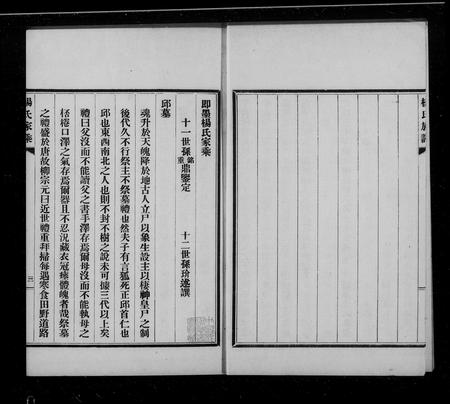 楊氏族譜
即墨楊氏家乘
十一世孫 錦鼎鑒定 重
十二世孫玠遂譔
邱墓
魂升於天魄降於地古人立尸以象生設主以棲神皇尸之制
後代久不行祭主不祭墓禮也然夫子有言狐死正邱首仁也
邱也東西南北之人也則不封不樹之說未可據三代以上矣
禮曰父沒而不能讀父之書手澤存焉爾母沒而不能執母之
桮棬口澤之氣存焉爾器且不忍況藏衣冠瘞體魄者哉祭墓
之禮盛於唐故柳宗元曰近世禮重拜掃每遇寒食田野道路
楊氏家乘
三